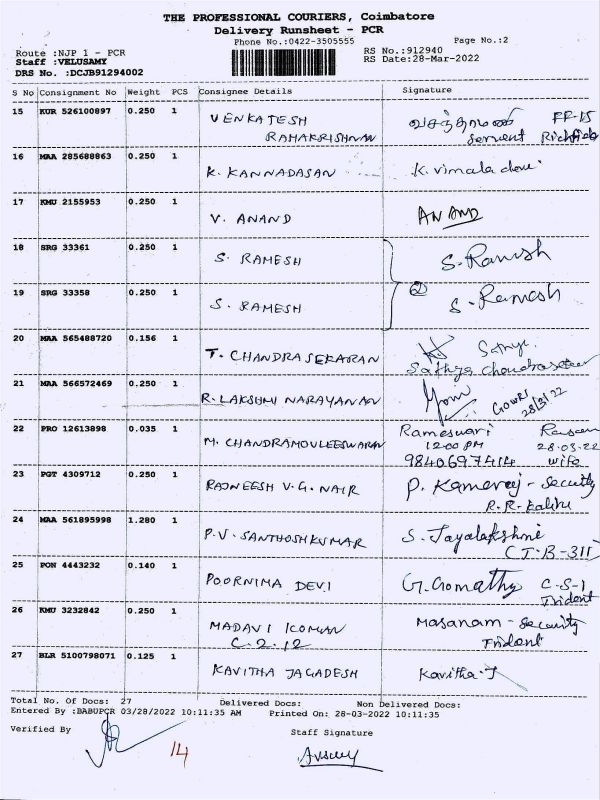 THE PROFESSIONAL COURIERS, Coimbatore
Delivery Runsheet - PCR
Phone No.:0422-3505555 Page No.:2
Route :NJP 1 - PCR RS No.:912940
Staff :VELUSAMY RS Date:28-Mar-2022
DRS No. :DCJB91294002
S No Consignment No Weight PCS Consignee Details Signature
15 KUR 526100897 0.250 1 VENKATESH வசந்தாமணி FF-15
RAMAKRISHNAN Servent Richfield
16 MAA 285688863 0.250 1 K. KANNADASAN K. vimala devi
17 KMU 2155953 0.250 1 V. ANAND ANAND
18 SRG 33361 0.250 1 S. RAMESH S. Ramesh
19 SRG 33358 0.250 1 S. RAMESH ② S. Ramesh
20 MAA 565488720 0.156 1 T. CHANDRASEKARAN Sathya
Sathya Chandrasekar
21 MAA 566572469 0.250 1 R. LAKSHMI NARAYANAN Gowri GOWRI 28/3/22
22 PRO 12613898 0.035 1 M. CHANDRAMOULEESWARAN Rameswari
12:00 PM 28.03.22
9840697414 wife
23 PGT 4309712 0.250 1 RAJNEESH V.G. NAIR P. Kameraj - Security
24 MAA 561895998 1.280 1 P.V. SANTHOSHKUMAR S. Jayalakshmi
CT-B-311
25 PON 4443232 0.140 1 POORNIMA DEVI G. Gomathy C-S-1
Trident
26 KMU 3232842 0.250 1 MADAVI KOMAN Masanam - Security
C.2.12 Trident
27 BLR 5100798071 0.125 1 KAVITHA JAGADESH Kavitha.J
Total No. Of Docs: 27 Delivered Docs: Non Delivered Docs:
Entered By :BABUPCR 03/28/2022 10:11:35 AM Printed On: 28-03-2022 10:11:35
Verified By Staff Signature
14